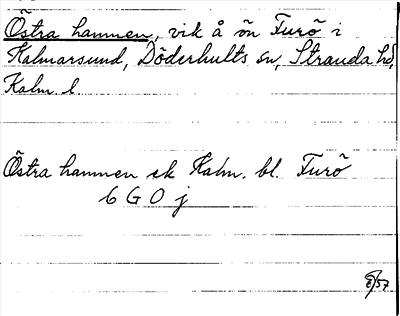 Östra hamnen, vik å ön Furö i
Kalmarsund, Döderhults sn, Stranda hd,
Kalm. l
Östra hamnen ek Kalm. bl. Furö
6 G O j
6/57